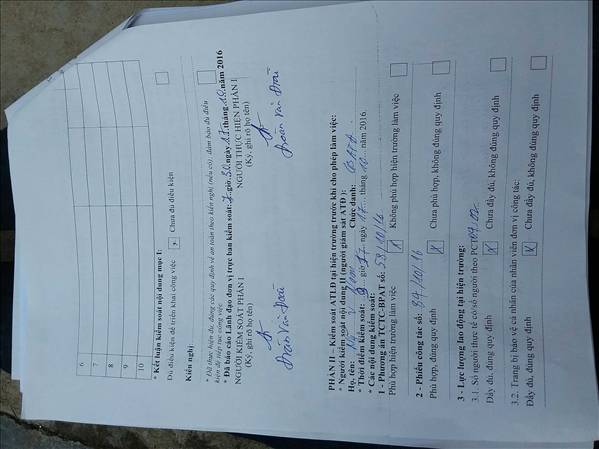 6
7
8
9
10
* Kết luận kiểm soát nội dung mục I:
Đủ điều kiện để triển khai công việc Chưa đủ điều kiện
Kiến nghị
* Đã thực hiện đủ, đúng các quy định về an toàn theo kiến nghị (nếu có), đảm bảo đủ điều
kiện để tiếp tục công việc
* Đã báo cáo Lãnh đạo đơn vị trực ban kiểm soát: 7 giờ 30 ngày 17 tháng 10 năm 2016
NGƯỜI KIỂM SOÁT PHẦN I NGƯỜI THỰC HIỆN PHẦN I
(Ký, ghi rõ họ tên) (Ký, ghi rõ họ tên)
Đoàn Văn Đoài Đoàn Văn Đoài
PHẦN II – Kiểm soát ATLĐ tại hiện trường trước khi cho phép làm việc:
* Người kiểm soát nội dung II (người giám sát ATĐ):
Họ, tên: Chức danh:
* Thời điểm kiểm soát: giờ ngày 17 tháng 10 năm 2016
* Các nội dung kiểm soát:
1 - Phương án TCTC-BPAT số: 58/10/16
Phù hợp hiện trường làm việc X Không phù hợp hiện trường làm việc
2 - Phiếu công tác số: 34/10/16
Phù hợp, đúng quy định X Chưa phù hợp, không đúng quy định
3 - Lực lượng lao động tại hiện trường:
3.1. Số người thực tế có/số người theo PCT
Đầy đủ, đúng quy định X Chưa đầy đủ, không đúng quy định
3.2. Trang bị bảo vệ cá nhân của nhân viên đơn vị công tác:
Đầy đủ, đúng quy định X Chưa đầy đủ, không đúng quy định